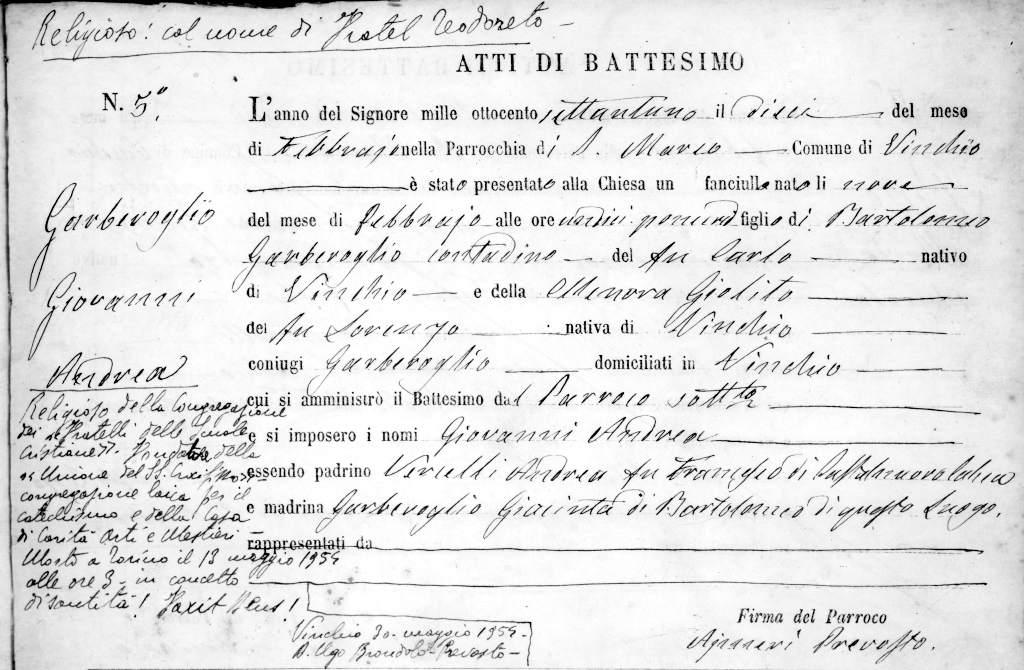 Religioso: col nome di Fratel Teodoreto -
ATTI DI BATTESIMO
N. 5°
L'anno del Signore mille ottocento settantuno il dieci del mese
di Febbrajo nella Parrocchia di S. Marco Comune di Vinchio
è stato presentato alla Chiesa un fanciullo nato li nove
del mese di febbrajo alle ore undici figlio di Bartolomeo
Garberoglio contadino del fu Carlo nativo
di Vinchio e della Ellenora Giolito
del fu Lorenzo nativa di Vinchio
coniugi Garberoglio domiciliati in Vinchio
cui si amministrò il Battesimo dal Parroco sott.to
e si imposero i nomi Giovanni Andrea
essendo padrino Vercelli Andrea fu di
e madrina Garberoglio Giacinta di Bartolomeo di questo Luogo.
rappresentati da
Firma del Parroco
Prevosto.
Garberoglio
Giovanni
Andrea
Religioso della Congregazione
dei Fratelli delle Scuole
Cristiane e Fondatore della
Unione del SS. Crocifisso
congregazione laica per il
catechismo e della Casa
di Carità Arti e Mestieri -
Morto a Torino il 13 maggio 1954
alle ore 3 - in concetto
di santità! Vaxit Deus!
Vinchio 30 - maggio 1954 -
D. Ugo Brondolo - Prevosto -